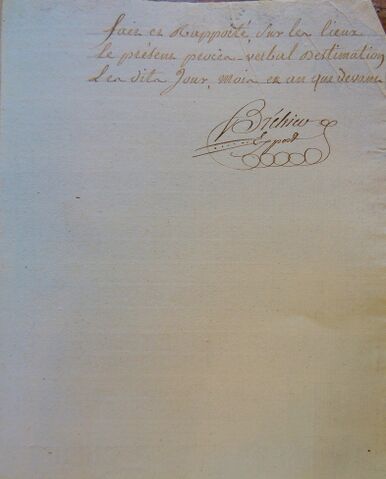 fait et Rapporté, Sur les lieux
le présent procès-verbal Destimation
Les dits Jour, mois et an que devant
Bréhier
Expert